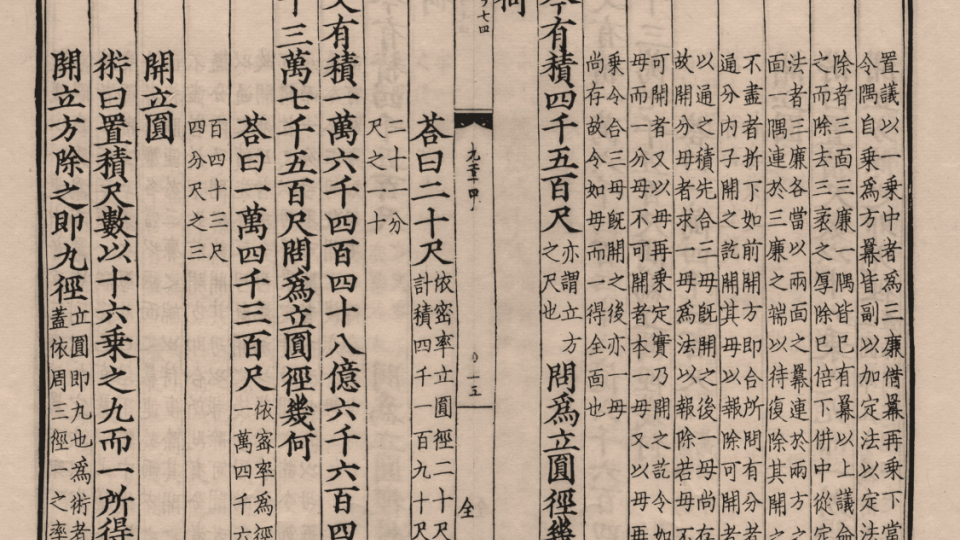 置議以一乘中者爲三廉借冪再乘下當
令隅自乘爲方冪皆副以加定法以定法
除者三面三廉一隅皆已有冪以上議命
之而除去三袤之厚除已倍下併中從定
法者三廉各當以兩面之冪連於兩方之
面一隅連於三廉之端以待復除其開之
不盡者折下如前開方即合所問有分者
通分內子開之訖開其母以報除可開者
以通之積先合三母既開之後一母尚存
故開分母者求一母爲法以報除若母不
可開者又以母再乘定實乃開之訖令如
母而一分母不可開者本一母又以母再
乘令合三母既開之後亦一母
尚存故令如母而一得全面也
今有積四千五百尺亦謂立方之尺也問爲立圓徑幾
何
全
荅曰二十尺依密率立圓徑二十尺計積四千一百九十尺
二十一分尺之一十
又有積一萬六千四百四十八億六千六百四
十三萬七千五百尺問爲立圓徑幾何
荅曰一萬四千三百尺依密率爲徑一萬四千六
百四十三尺四分尺之三
開立圓
術曰置積尺數以十六乘之九而一所得
開立方除之即九徑立圓即九也爲術者蓋依周三徑一之率